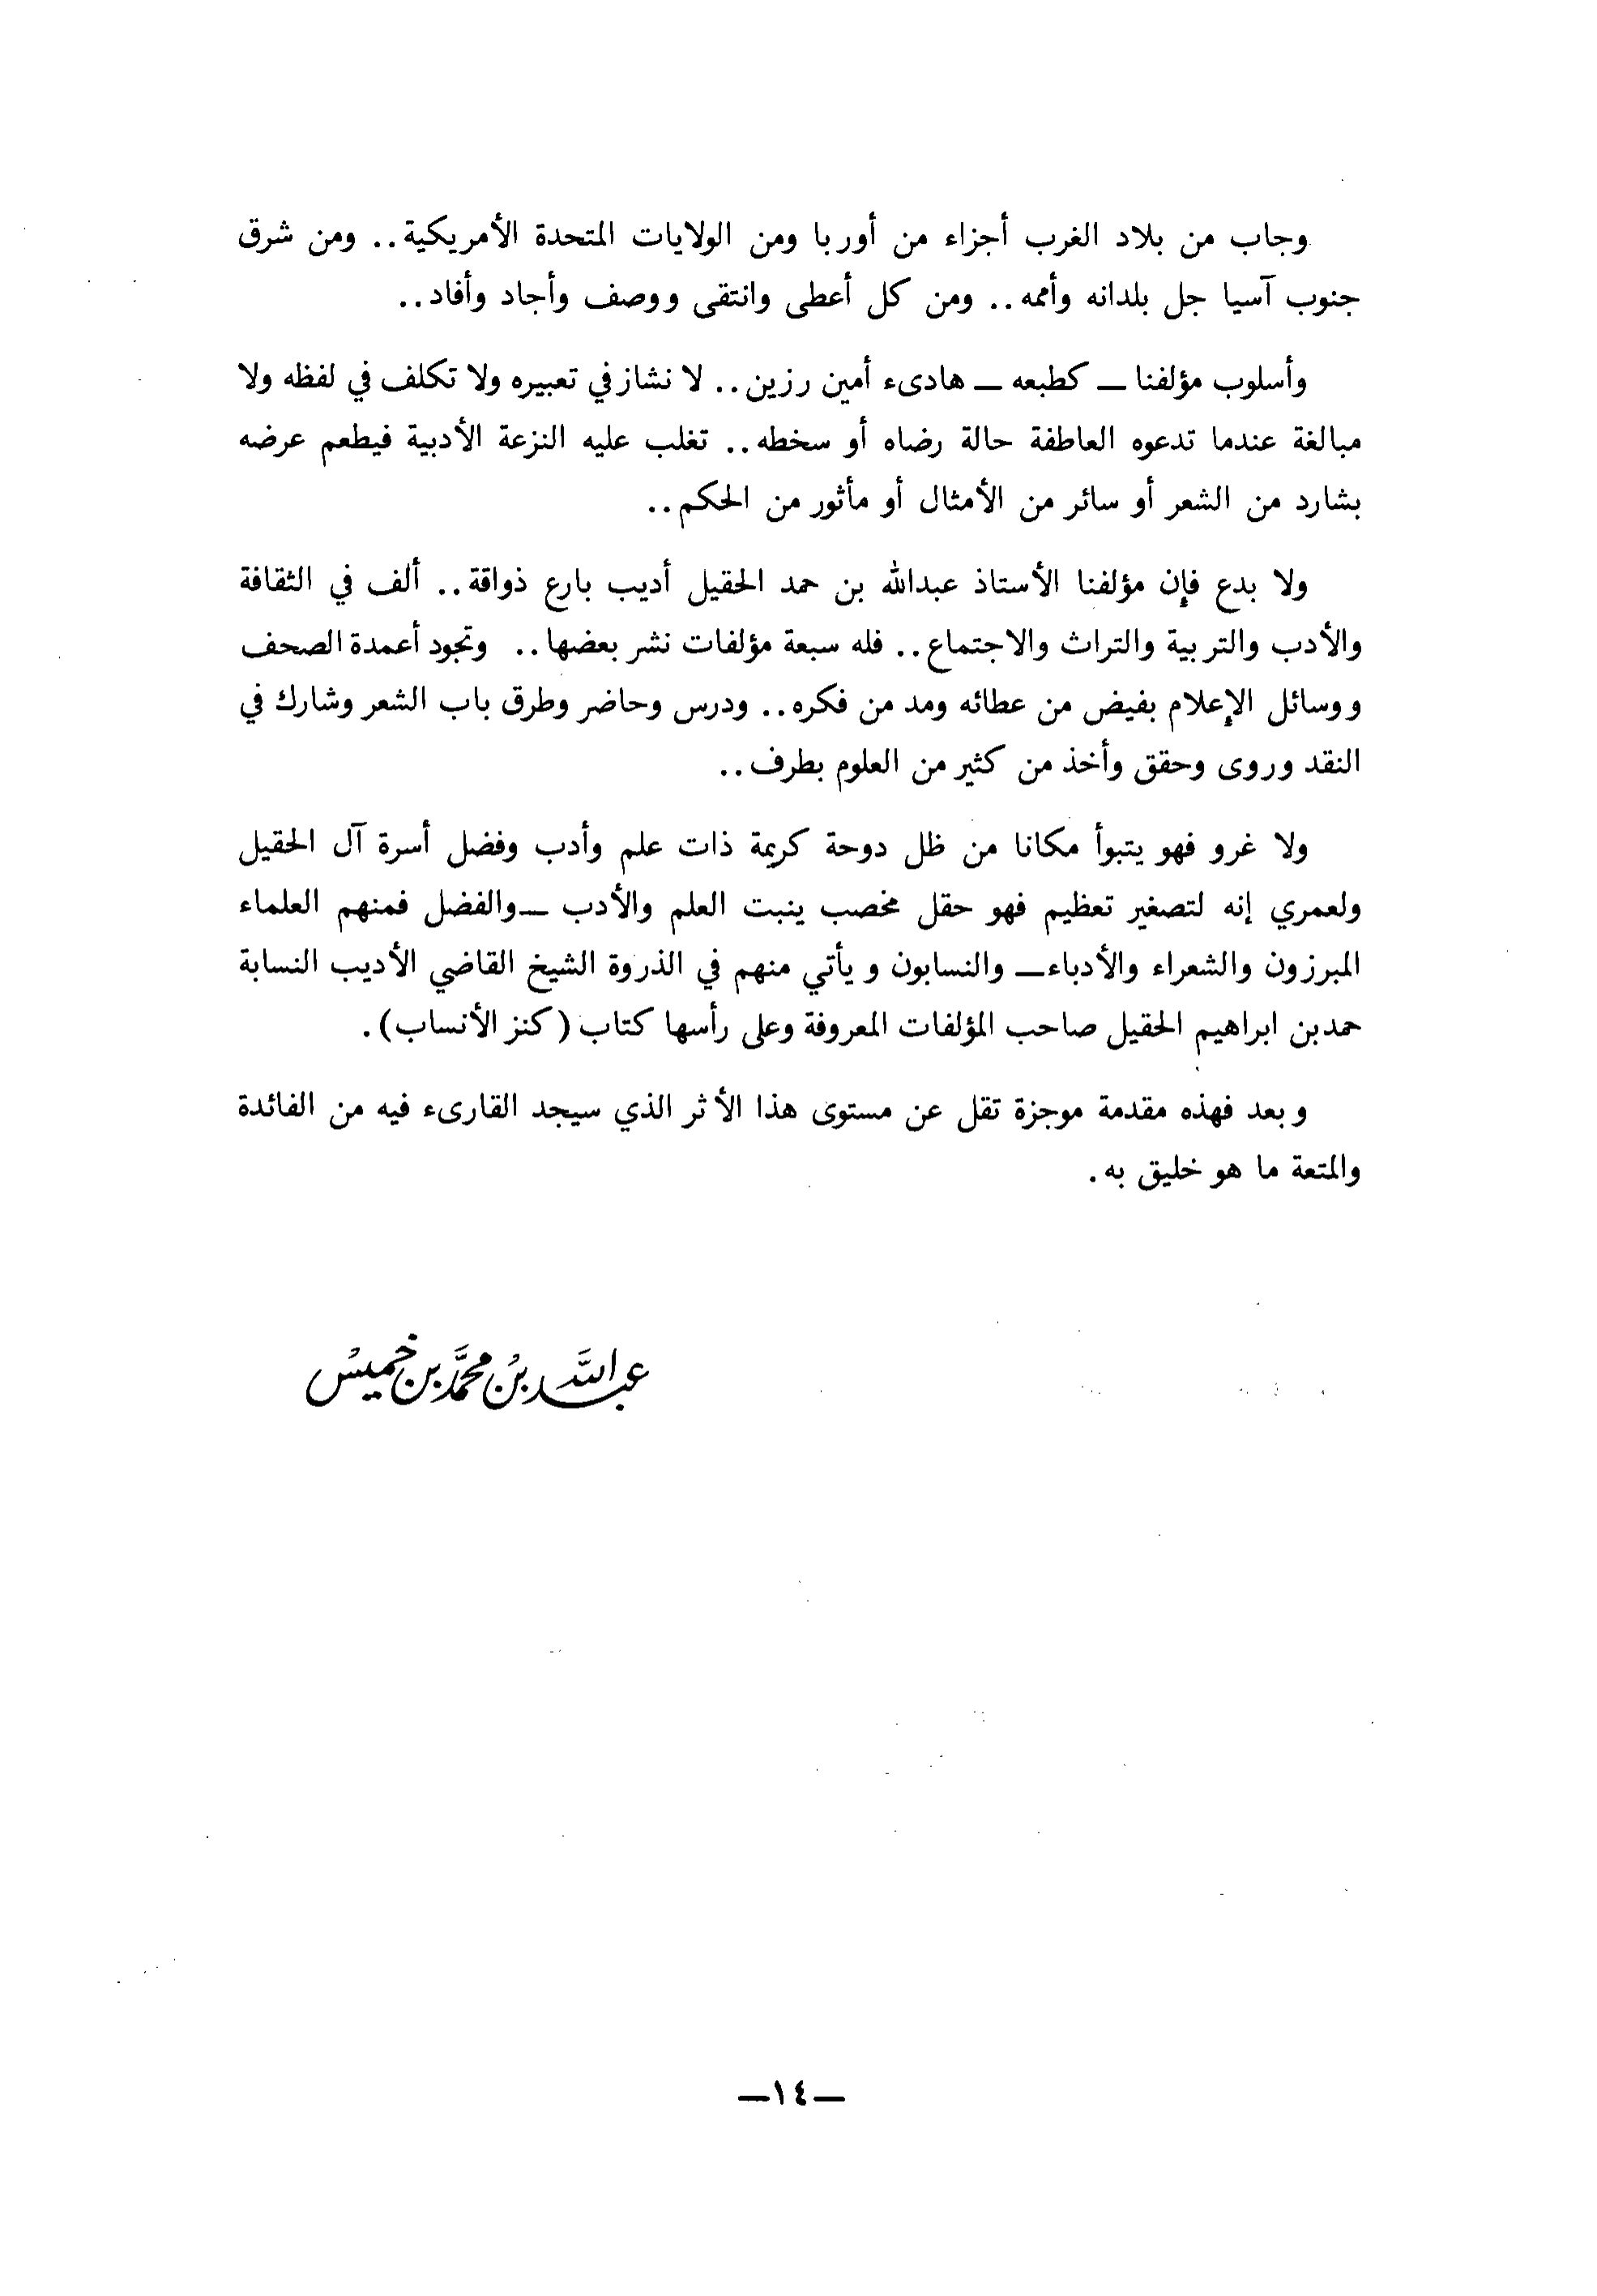 وجاب من بلاد الغرب أجزاء من أوربا ومن الولايات المتحدة الأمريكية.. ومن شرق
جنوب آسيا جل بلدانه وأممه.. ومن كل أعطى وانتقى ووصف وأجاد وأفاد..
وأسلوب مؤلفنا — كطبعه — هادىء أمين رزين.. لا نشاز في تعبيره ولا تكلف في لفظه ولا
مبالغة عندما تدعوه العاطفة حالة رضاه أو سخطه.. تغلب عليه النزعة الأدبية فيطعم عرضه
بشارد من الشعر أو سائر من الأمثال أو مأثور من الحكم..
ولا بدع فإن مؤلفنا الأستاذ عبدالله بن حمد الحقيل أديب بارع ذواقة.. ألف في الثقافة
والأدب والتربية والتراث والاجتماع.. فله سبعة مؤلفات نشر بعضها.. وتجود أعمدة الصحف
ووسائل الإعلام بفيض من عطائه ومد من فكره.. ودرس وحاضر وطرق باب الشعر وشارك في
النقد وروى وحقق وأخذ من كثير من العلوم بطرف..
ولا غرو فهو يتبوأ مكانا من ظل دوحة كريمة ذات علم وأدب وفضل أسرة آل الحقيل
ولعمري إنه لتصغير تعظيم فهو حقل مخصب ينبت العلم والأدب —والفضل فمنهم العلماء
المبرزون والشعراء والأدباء— والنسابون ويأتي منهم في الذروة الشيخ القاضي الأديب النسابة
حمدبن ابراهيم الحقيل صاحب المؤلفات المعروفة وعلى رأسها كتاب (كنز الأنساب).
وبعد فهذه مقدمة موجزة تقل عن مستوى هذا الأثر الذي سيجد القارىء فيه من الفائدة
والمتعة ما هو خليق به.
عبد اللَّه بنُ محمَّد بن خميسُ
—١٤—